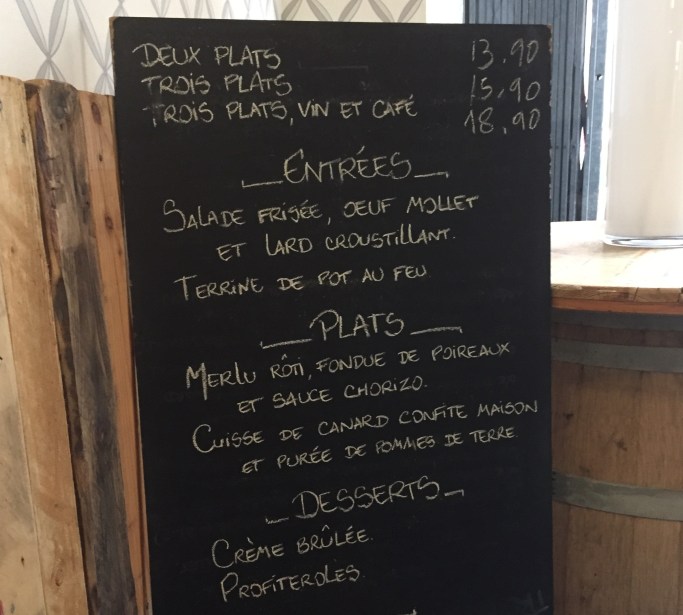 DEUX PLATS 13.90
TROIS PLATS 15.90
TROIS PLATS, VIN ET CAFÉ 18.90
ENTRÉES
SALADE FRISÉE, OEUF MOLLET
ET LARD CROUSTILLANT.
TERRINE DE POT AU FEU
PLATS
MERLU RÔTI, FONDUE DE POIREAUX
ET SAUCE CHORIZO.
CUISSE DE CANARD CONFITE MAISON
ET PURÉE DE POMMES DE TERRE.
DESSERTS
CRÈME BRÛLÉE.
PROFITEROLES.